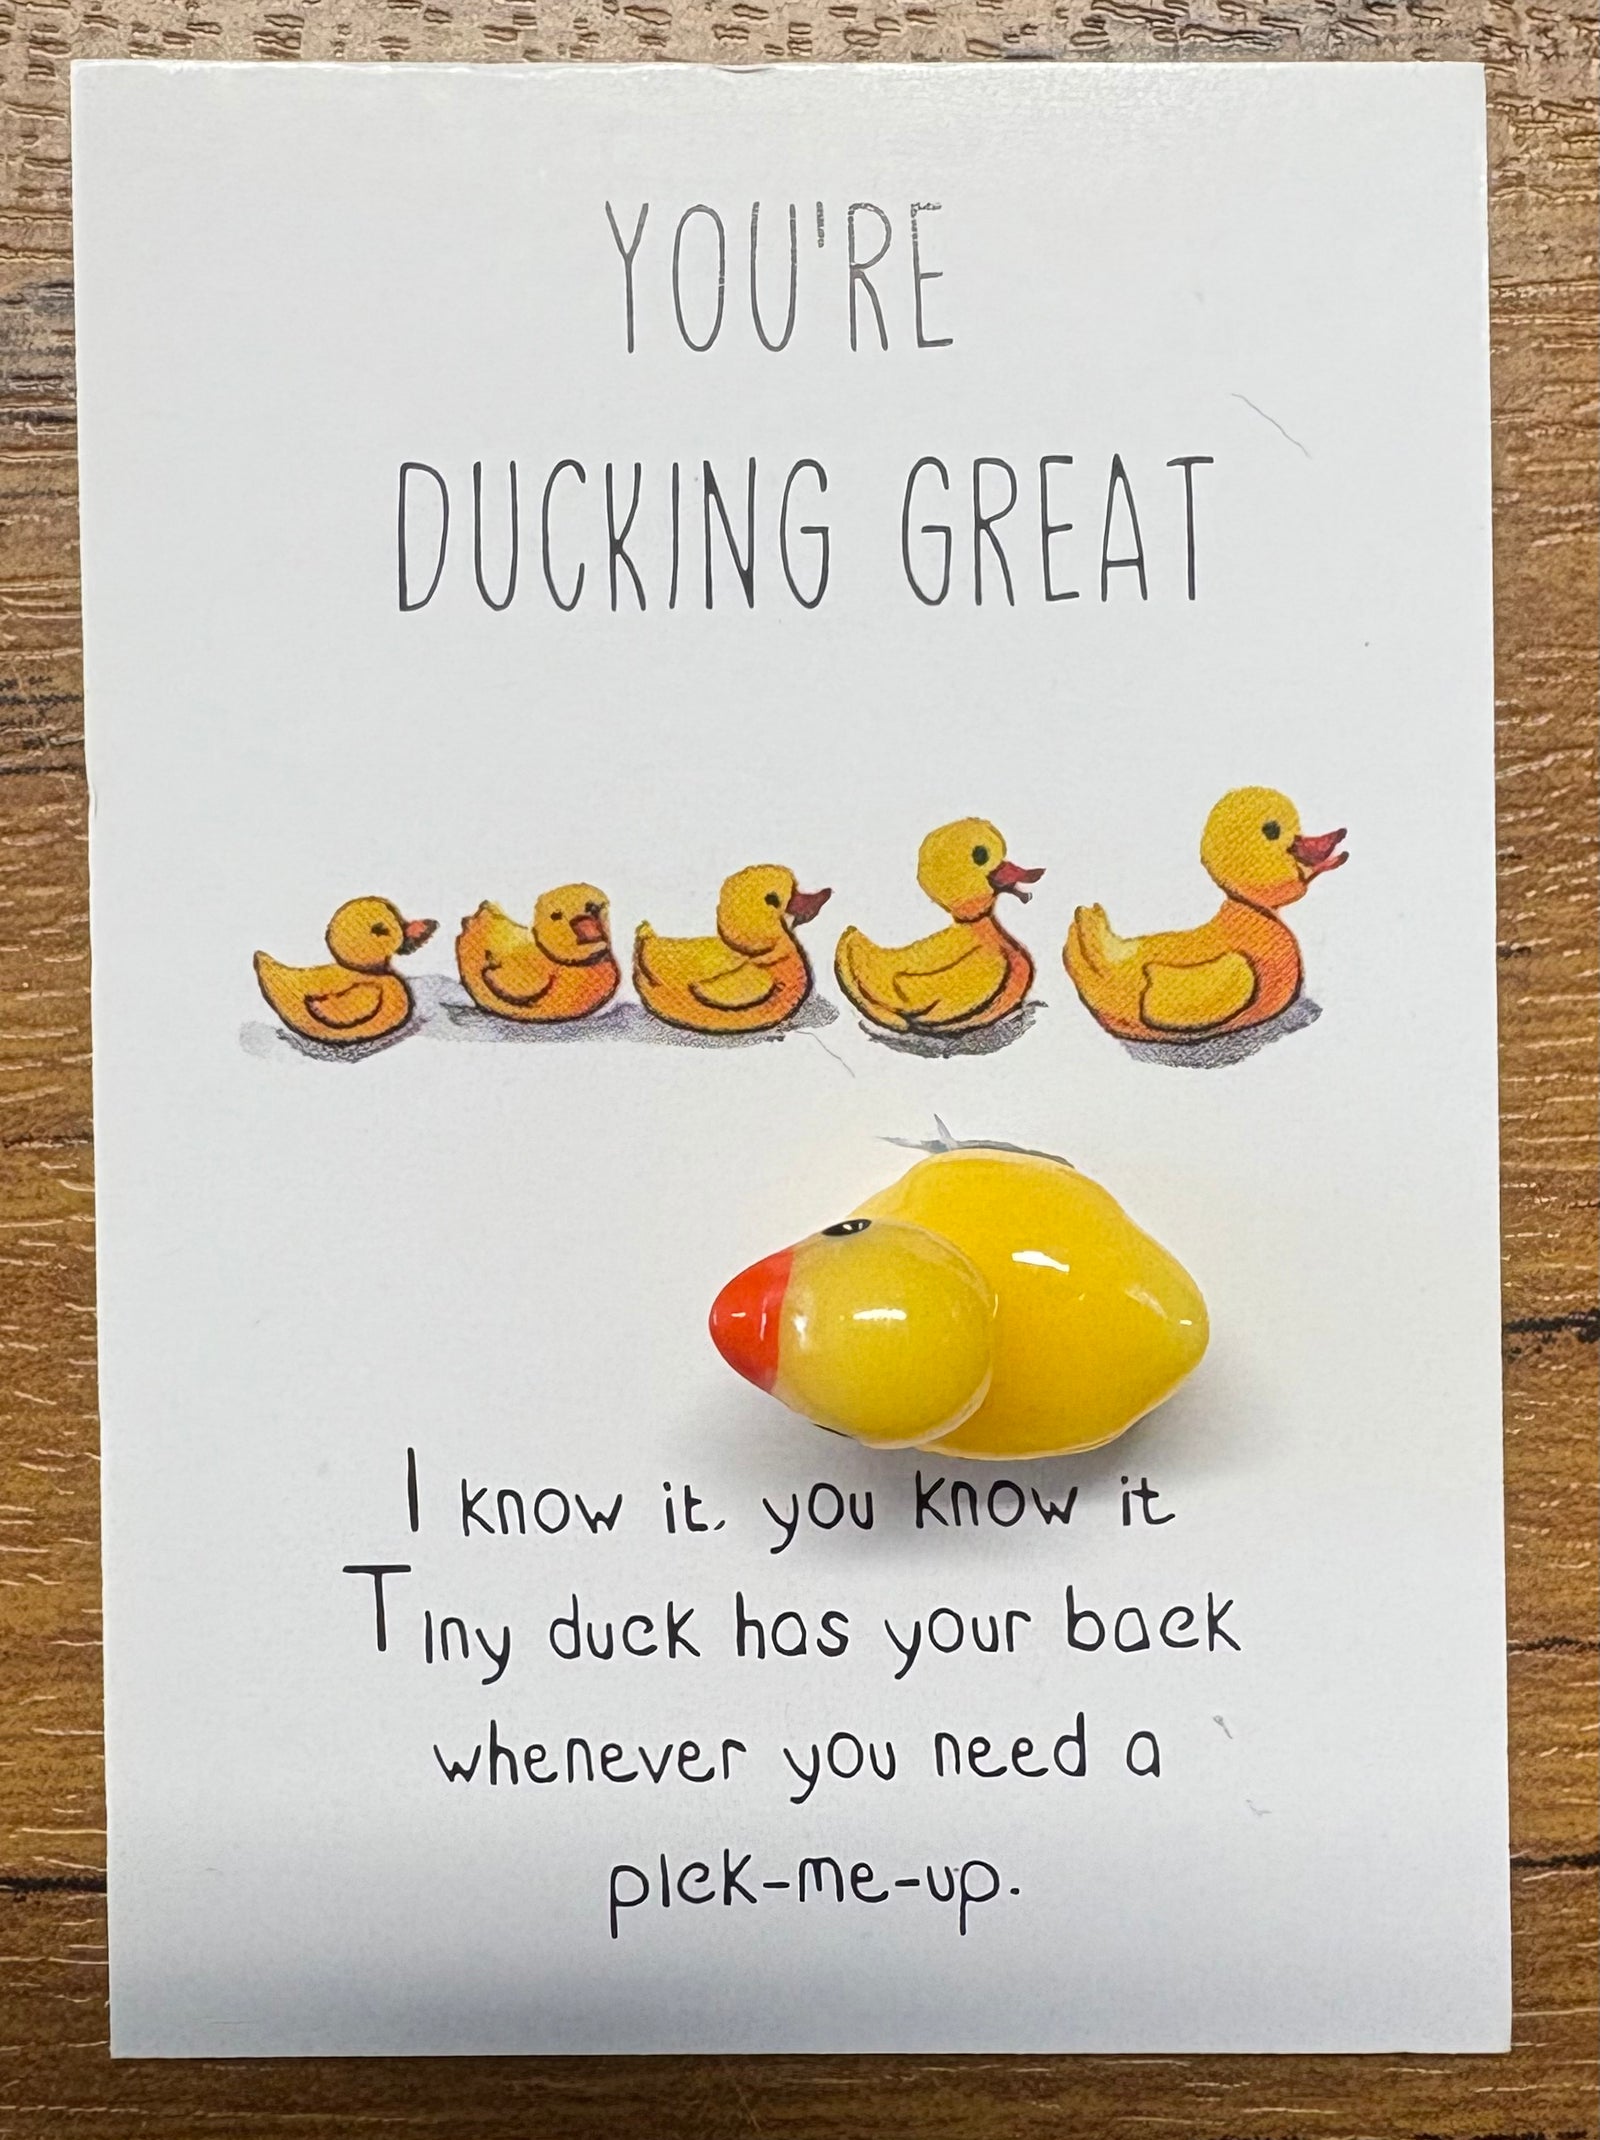 YOU'RE
DUCKING GREAT
I know it, you know it
Tiny duck has your back
whenever you need a
pick-me-up.